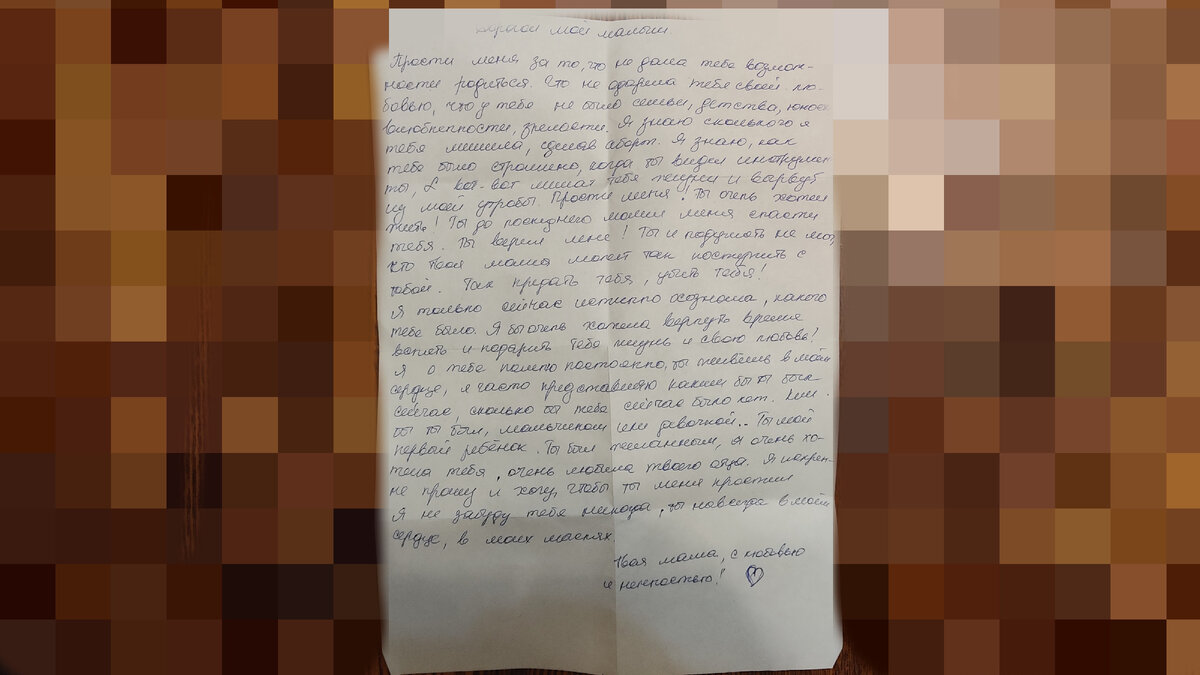 Дорогой мой малыш
Прости меня за то, что не дала тебе возмож-
ности родиться. Что не одарила тебя своей лю-
бовью, что у тебя не было семьи, детства, юности
влюбленности, зрелости. Я знаю сколького я
тебя лишила, сделав аборт. Я знаю, как
тебе было страшно, когда ты видел инструмен
ты, вот-вот лишат тебя жизни и вырвут
из моей утробы. Прости меня! Ты очень хотел
жить! Ты до последнего молил меня спасти
тебя. Ты верил мне! Ты и подумать не мог,
что твоя мама может так поступить с
тобой. Так предать тебя, убить тебя!
Я только сейчас истинно осознала, каково
тебе было. Я бы очень хотела вернуть время
вспять и подарить тебе жизнь и свою любовь!
Я о тебе помню постоянно, ты живёшь в моём
сердце, я часто представляю каким бы ты был
сейчас, сколько бы тебе сейчас было лет. Кем
бы ты был, мальчиком или девочкой.. Ты мой
первый ребёнок. Ты был желанным, я очень хо-
тела тебя, очень любила твоего отца. Я искрен-
не прошу и хочу, чтобы ты меня простил
Я не забуду тебя никогда, ты навсегда в моём
сердце, в моих мыслях.
Твоя мама, с любовью
и нежностью!